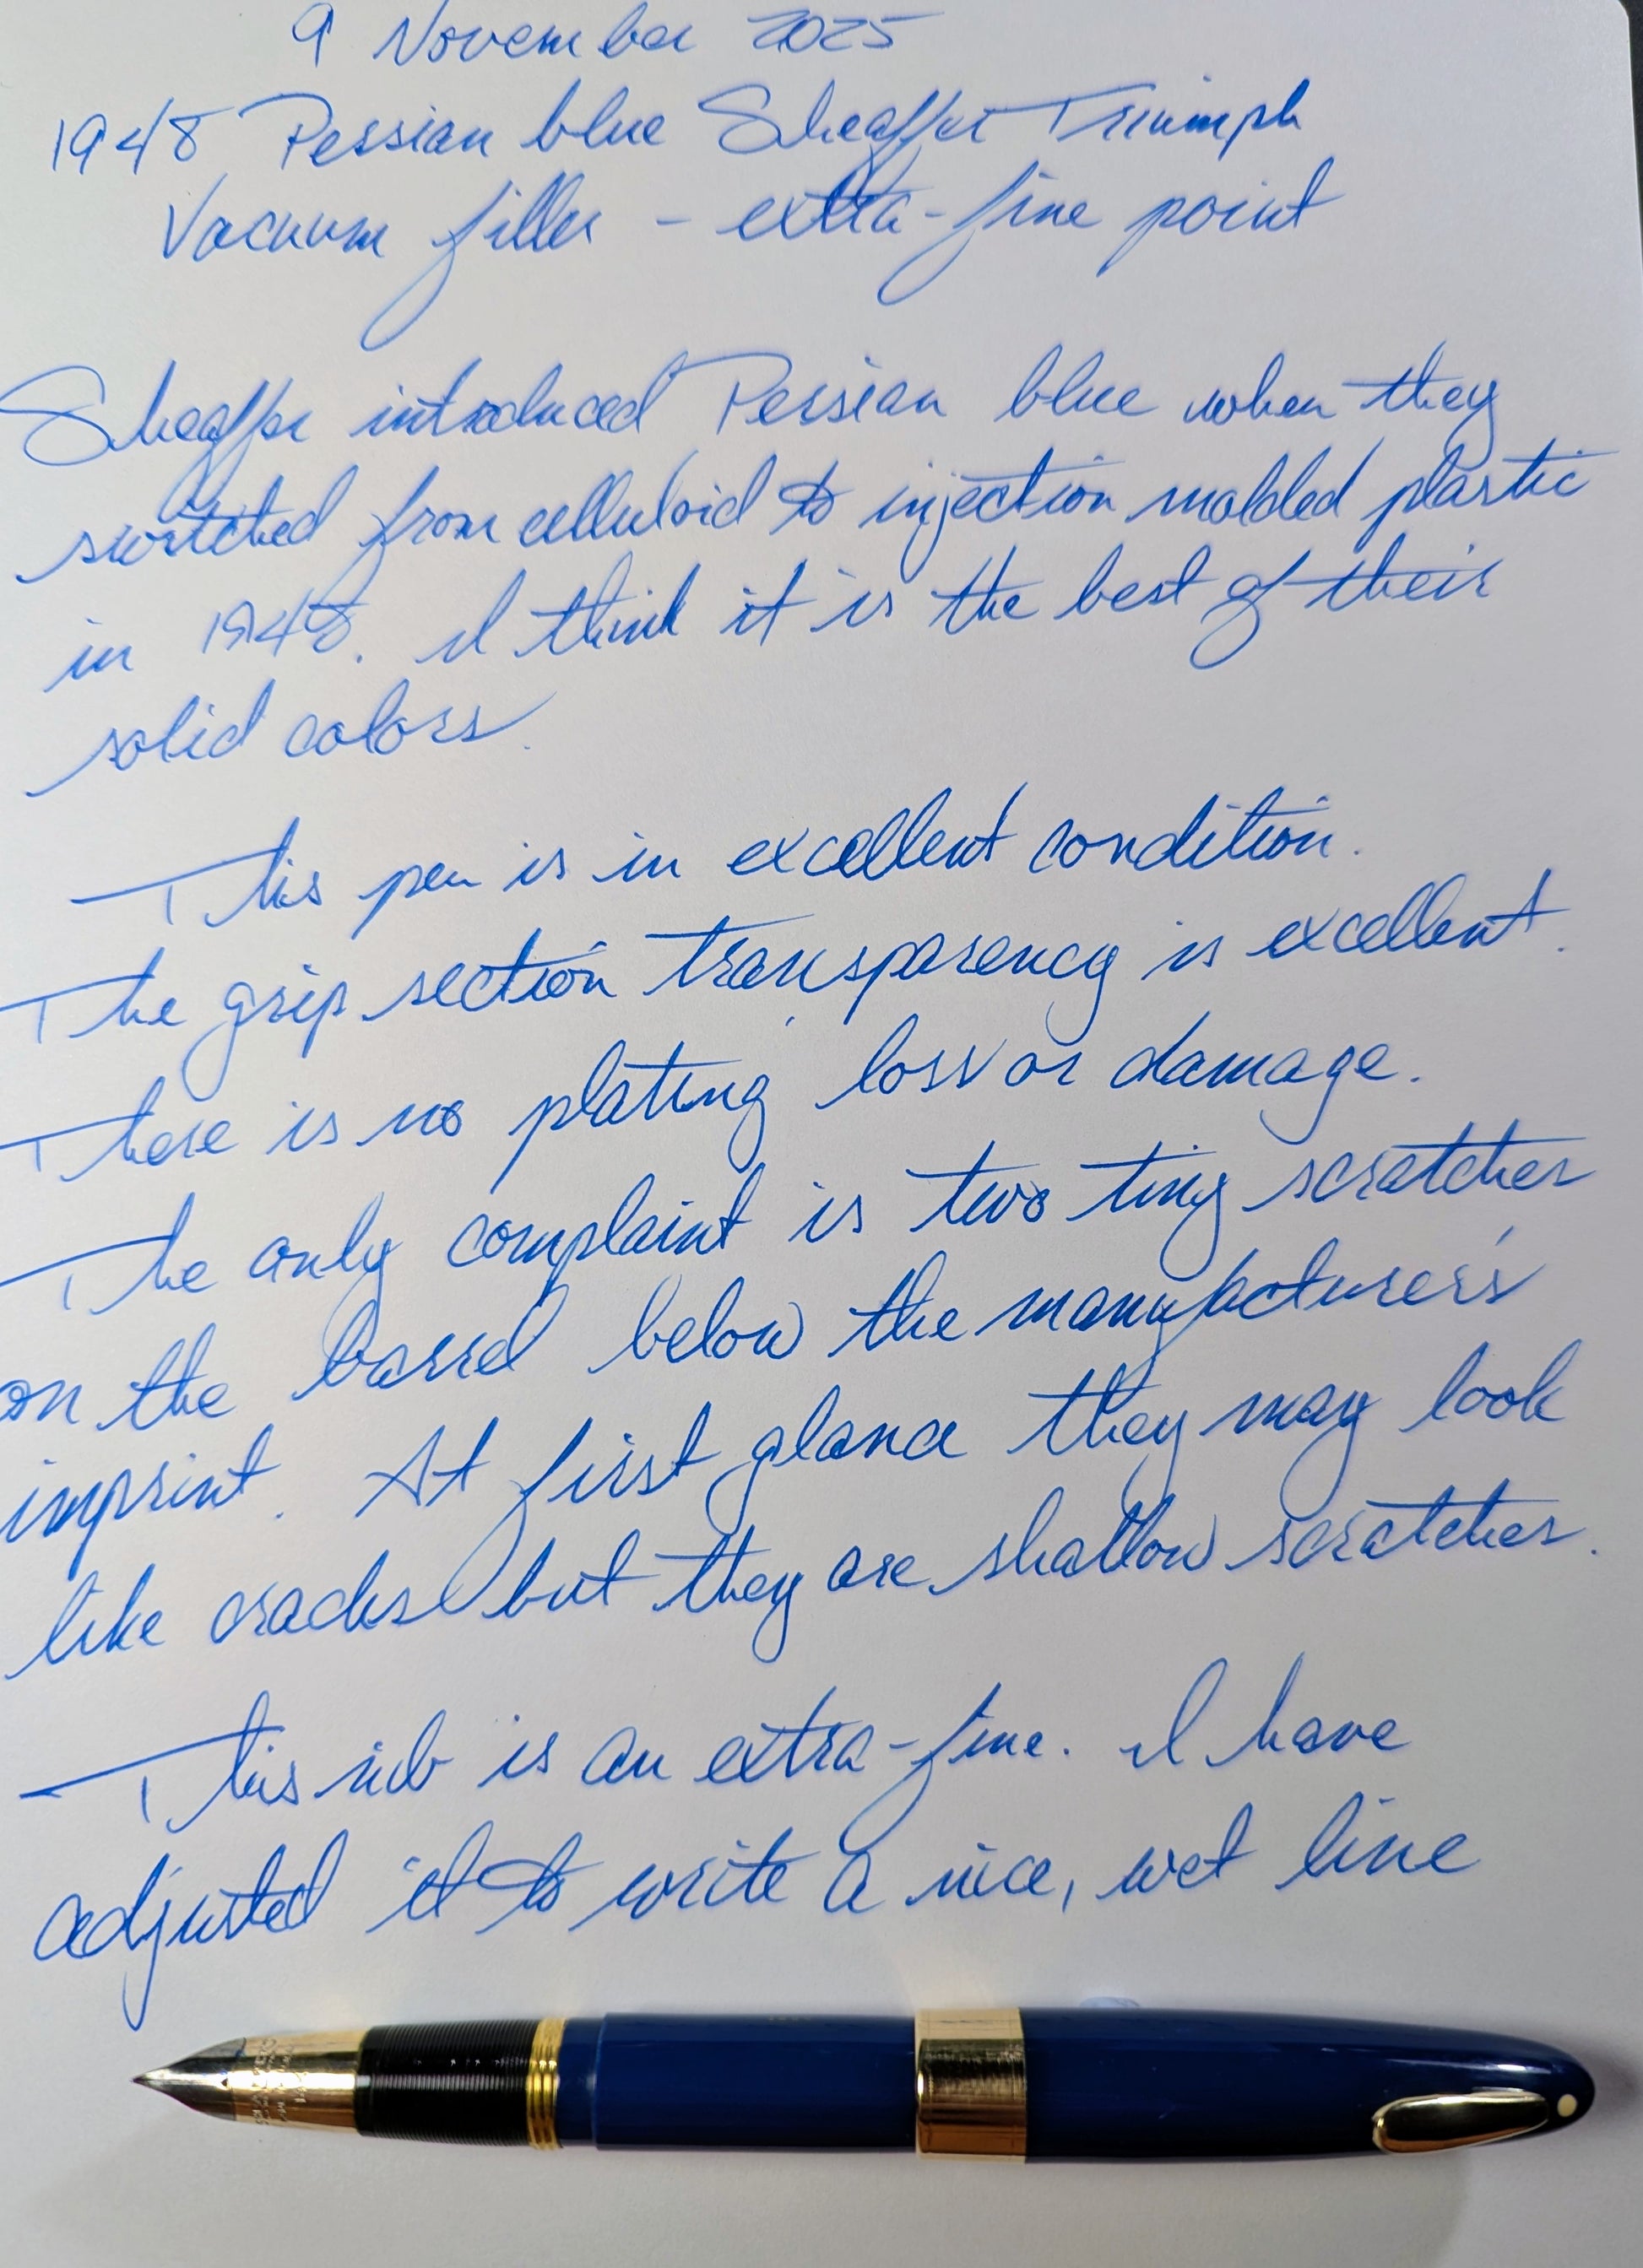 9 November 2025
1948 Persian blue Sheaffer Triumph
Vacuum filler - extra-fine point
Sheaffer introduced Persian blue when they
switched from celluloid to injection molded plastic
in 1948. I think it is the best of their
solid colors.
This pen is in excellent condition.
The grip section transparency is excellent.
There is no plating loss or damage.
The only complaint is two tiny scratches
on the barrel below the manufacturer's
imprint. At first glance they may look
like cracks but they are shallow scratches.
This nib is an extra-fine. I have
adjusted it to write a nice, wet line